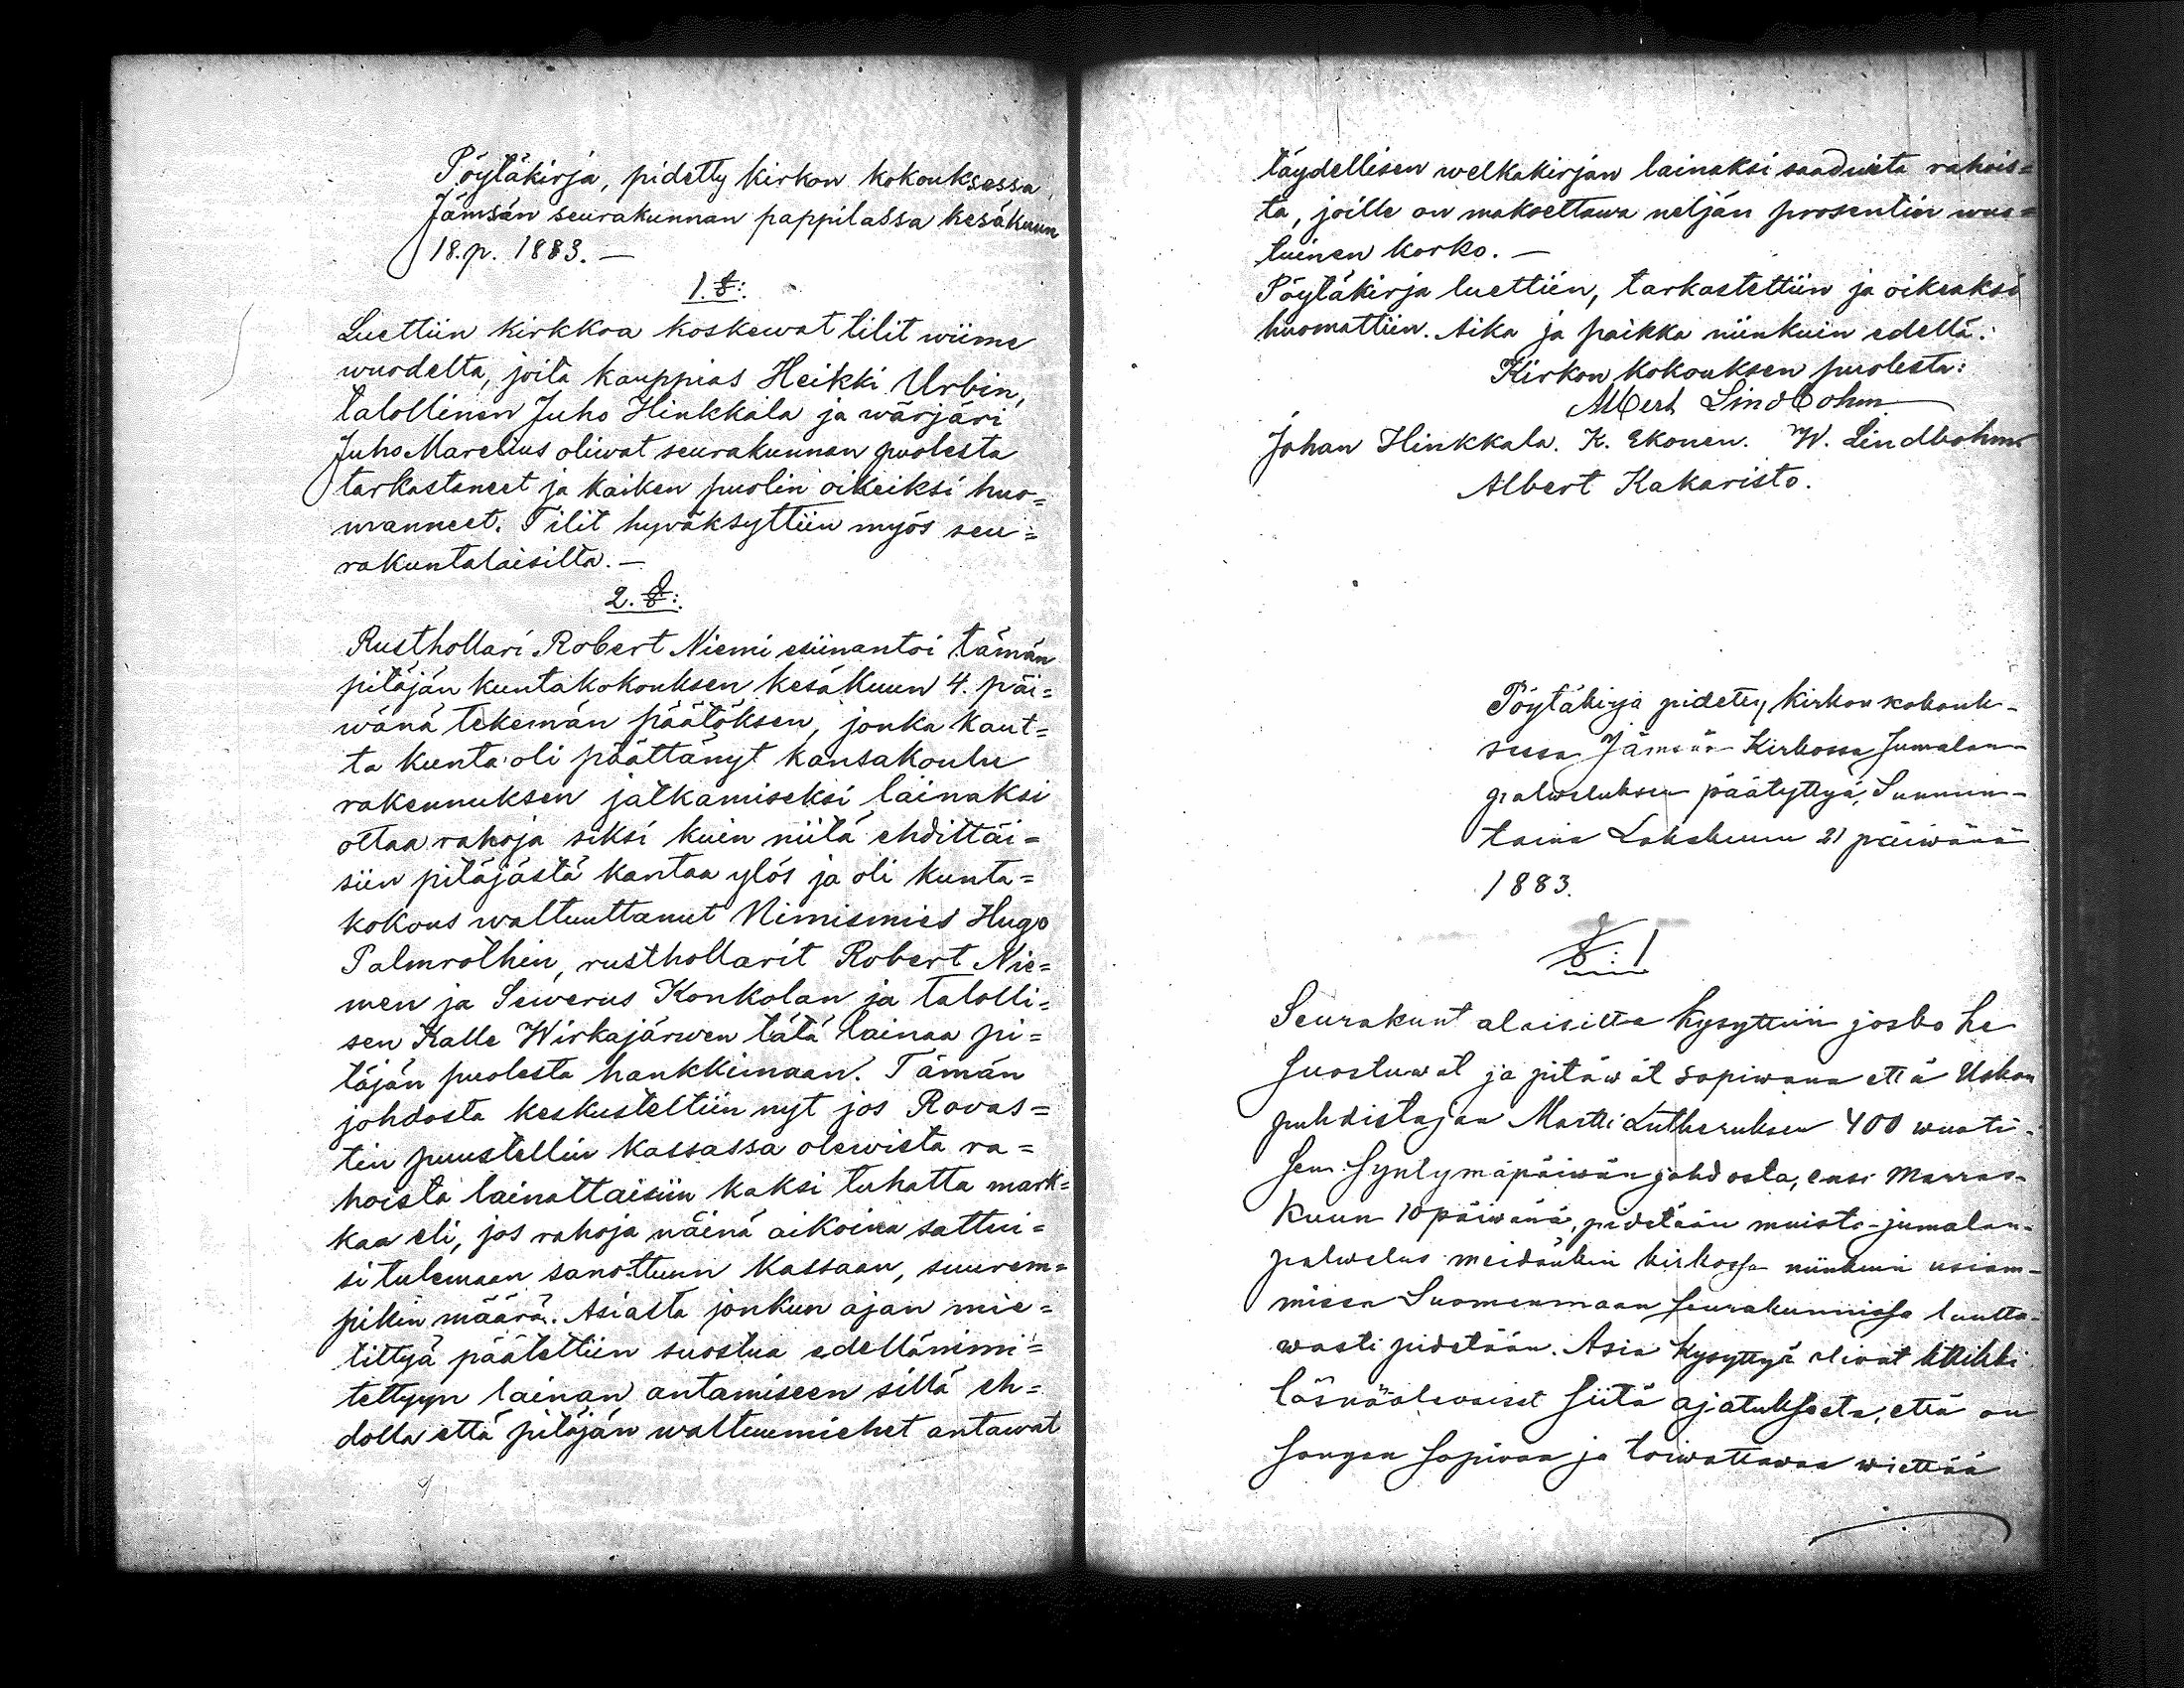 Pöytäkirja, pidetty kirkon kokouksessa
Jämsän seurakunnan pappilassa kesäkuun
18. p. 1883. —
1. §:
Luettiin kirkkoa koskewat tilit wiime
wuodelta, joita kauppias Heikki Urbin,
talollinen Juho Hinkkala ja wärjäri
Juho Marelius oliwat seurakunnan puolesta
tarkastaneet ja kaiken puolin oikeiksi huo=
manneet. Tilit hyväksyttiin myös seu=
rakuntalaisilta. —
2. §:
Rusthollari Robert Niemi esiinantoi tämän
pitäjän kuntakokouksen kesäkuun 4. päi=
wänä tekemän päätöksen, jonka kaut=
ta kunta oli päättänyt kansakoulu
rakennuksen jatkamiseksi lainaksi
ottaa rahoja siksi kuin niitä ehdittäi=
siin pitäjästä kantaa ylös ja oli kunta=
kokous waltuuttanut Nimismies Hugo
Palmrothin, rusthollarit Robert Nie=
men ja Sewerus Konkolan ja talolli=
sen Kalle Wirkajärwen tätä lainaa pi=
täjän puolesta hankkimaan. Tämän
johdosta keskusteltiin nyt jos Rovas=
tin puustellin kassassa olewista ra=
hoista lainattaisiin kaksi tuhatta mark=
kaa eli, jos rahoja näinä aikoina sattui=
si tulemaan sanottuun kassaan, suurem=
pikin määrä. Asiasta jonkun ajan mie=
tittyä päätettiin suostua edellämimi=
tettyyn lainan antamiseen sillä eh=
dolla että pitäjän waltuumiehet antawat
täydellisen welkakirjan lainaksi saaduista rahois=
ta, joille on maksettawa neljän prosentin wuo=
tuinen korko. —
Pöytäkirja luettiin, tarkastettiin ja oikeaksi
huomattiin. Aika ja paikka niinkuin edellä:
Kirkon kokouksen puolesta:
Albert Lindbohm
Johan Hinkkala. K. Ekonen. W. Lindbohm
Albert Kakaristo.
Pöytäkirja pidetty kirkon kokouk-
sessa Jämsän Kirkossa Jumalan-
palweluksen päätyttyä, Sunnun-
taina Lokakuun 21 päiwänä
1883.
§: 1
Seurakuntalaisilta kysyttiin josko he
suostuwat ja pitäwät sopiwana että Uskon
puhdistajan Martti Lutheruksen 400 wuoti-
sen syntymäpäiwän johdosta, ensi Marras-
kuun 10 päiwänä, pidetään muisto-jumalan-
palwelus meidänkin kirkossa niinkuin usiam-
missa Suomenmaan seurakunnissa luulta-
wasti pidetään. Asia kysyttyä oliwat kaikki
läsnäolewaiset siitä ajatuksesta, että on
sangen sopiwaa ja toiwottawaa wiettää